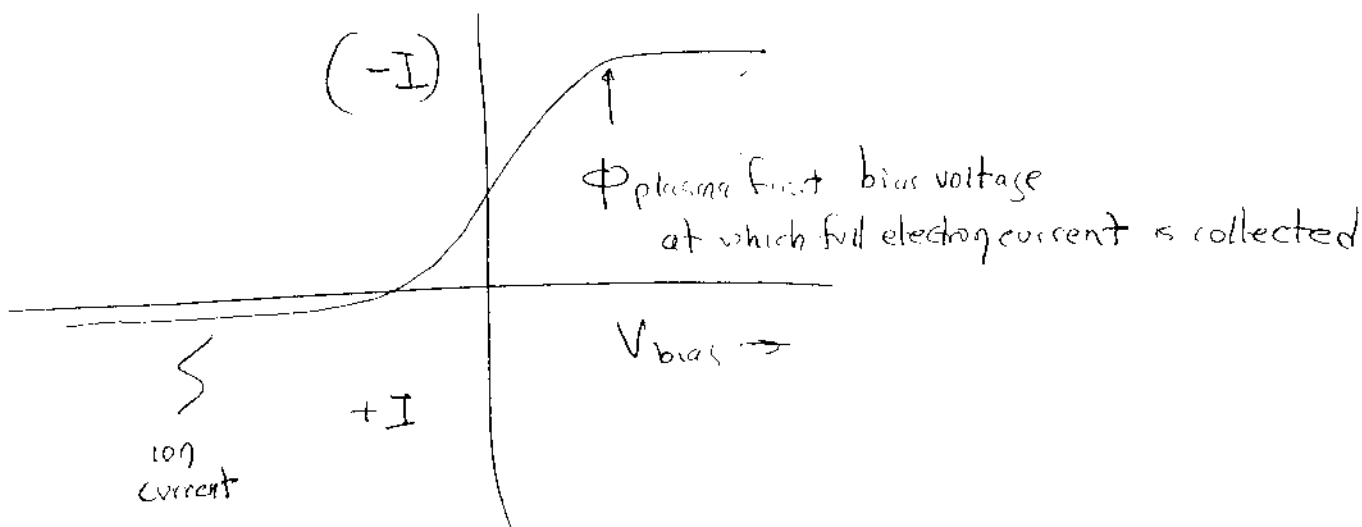 (-I)
Φplasma first bias voltage
at which full electron current is collected
Vbias →
+I
ion
current